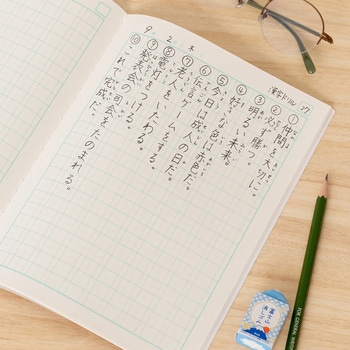 漢字ドリル 27
①仲間を大切に。
②必ず勝つ。
③明るい未来。
④好きな色は赤色だ。
⑤今日は成人の日だ。
⑥伝言ゲームをする。
⑦老人をいたわる。
⑧電灯をつける。
⑨発表会の司会をたのまれる。
⑩これで完成だ。
9 2 木
富士山
消しゴム
FOR GENERAL WRITING